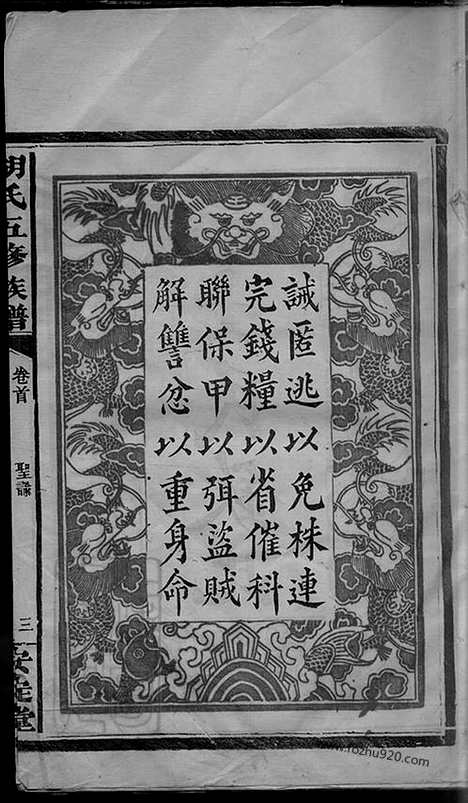 誡匿逃以免株連
完錢糧以省催科
聯保甲以弭盜賊
解讐忿以重身命
胡氏五修族譜
卷首
聖諭
三
安定堂
www.rozhu920.com